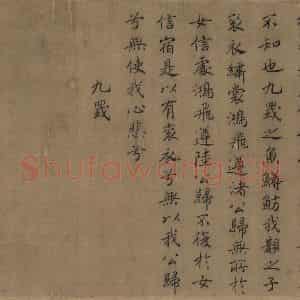 不知也九罭之魚鱒魴我覯之子
袞衣繡裳鴻飛遵渚公歸無所於
女信處鴻飛遵陸公歸不復於女
信宿是以有袞衣兮無以我公歸
兮無使我心悲兮
九罭
Shufawang.CN